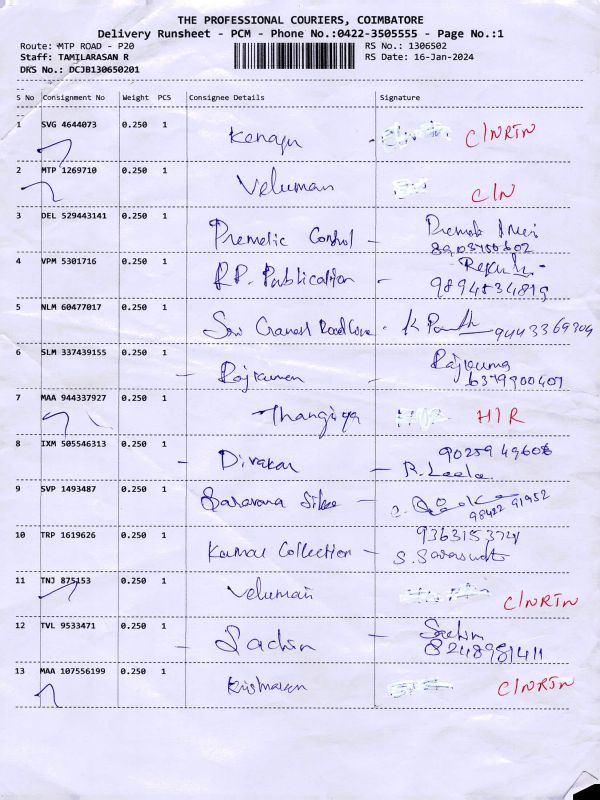 THE PROFESSIONAL COURIERS, COIMBATORE
Delivery Runsheet - PCM - Phone No.:0422-3505555 - Page No.:1
Route: MTP ROAD - P20
RS No.: 1306502
Staff: TAMILARASAN R
RS Date: 16-Jan-2024
DRS No.: DCJB130650201
S No Consignment No Weight PCS Consignee Details Signature
1 SVG 4644073 0.250 1
C/NRTN
2 MTP 1269710 0.250 1 Veluman
C/N
3 DEL 529443141 0.250 1
Premetic Control -
4 VPM 5301716 0.250 1
RP. Publication - 9894534819
5 NLM 60477017 0.250 1
9443369309
6 SLM 337439155 0.250 1 Rajkuma
- Rajkumar 6379900407
7 MAA 944337927 0.250 1
Thangiya H/R
8 IXM 505546313 0.250 1 9025949608
- Divakar - R. Leela
9 SVP 1493487 0.250 1
Saravana Silks - 98422 91952
10 TRP 1619626 0.250 1
Kumar Collection - S. Saraswati
11 TNJ 875153 0.250 1
Veluman C/NRTN
12 TVL 9533471 0.250 1 Sachin
- Sachin - 8248981411
13 MAA 107556199 0.250 1
C/NRTN